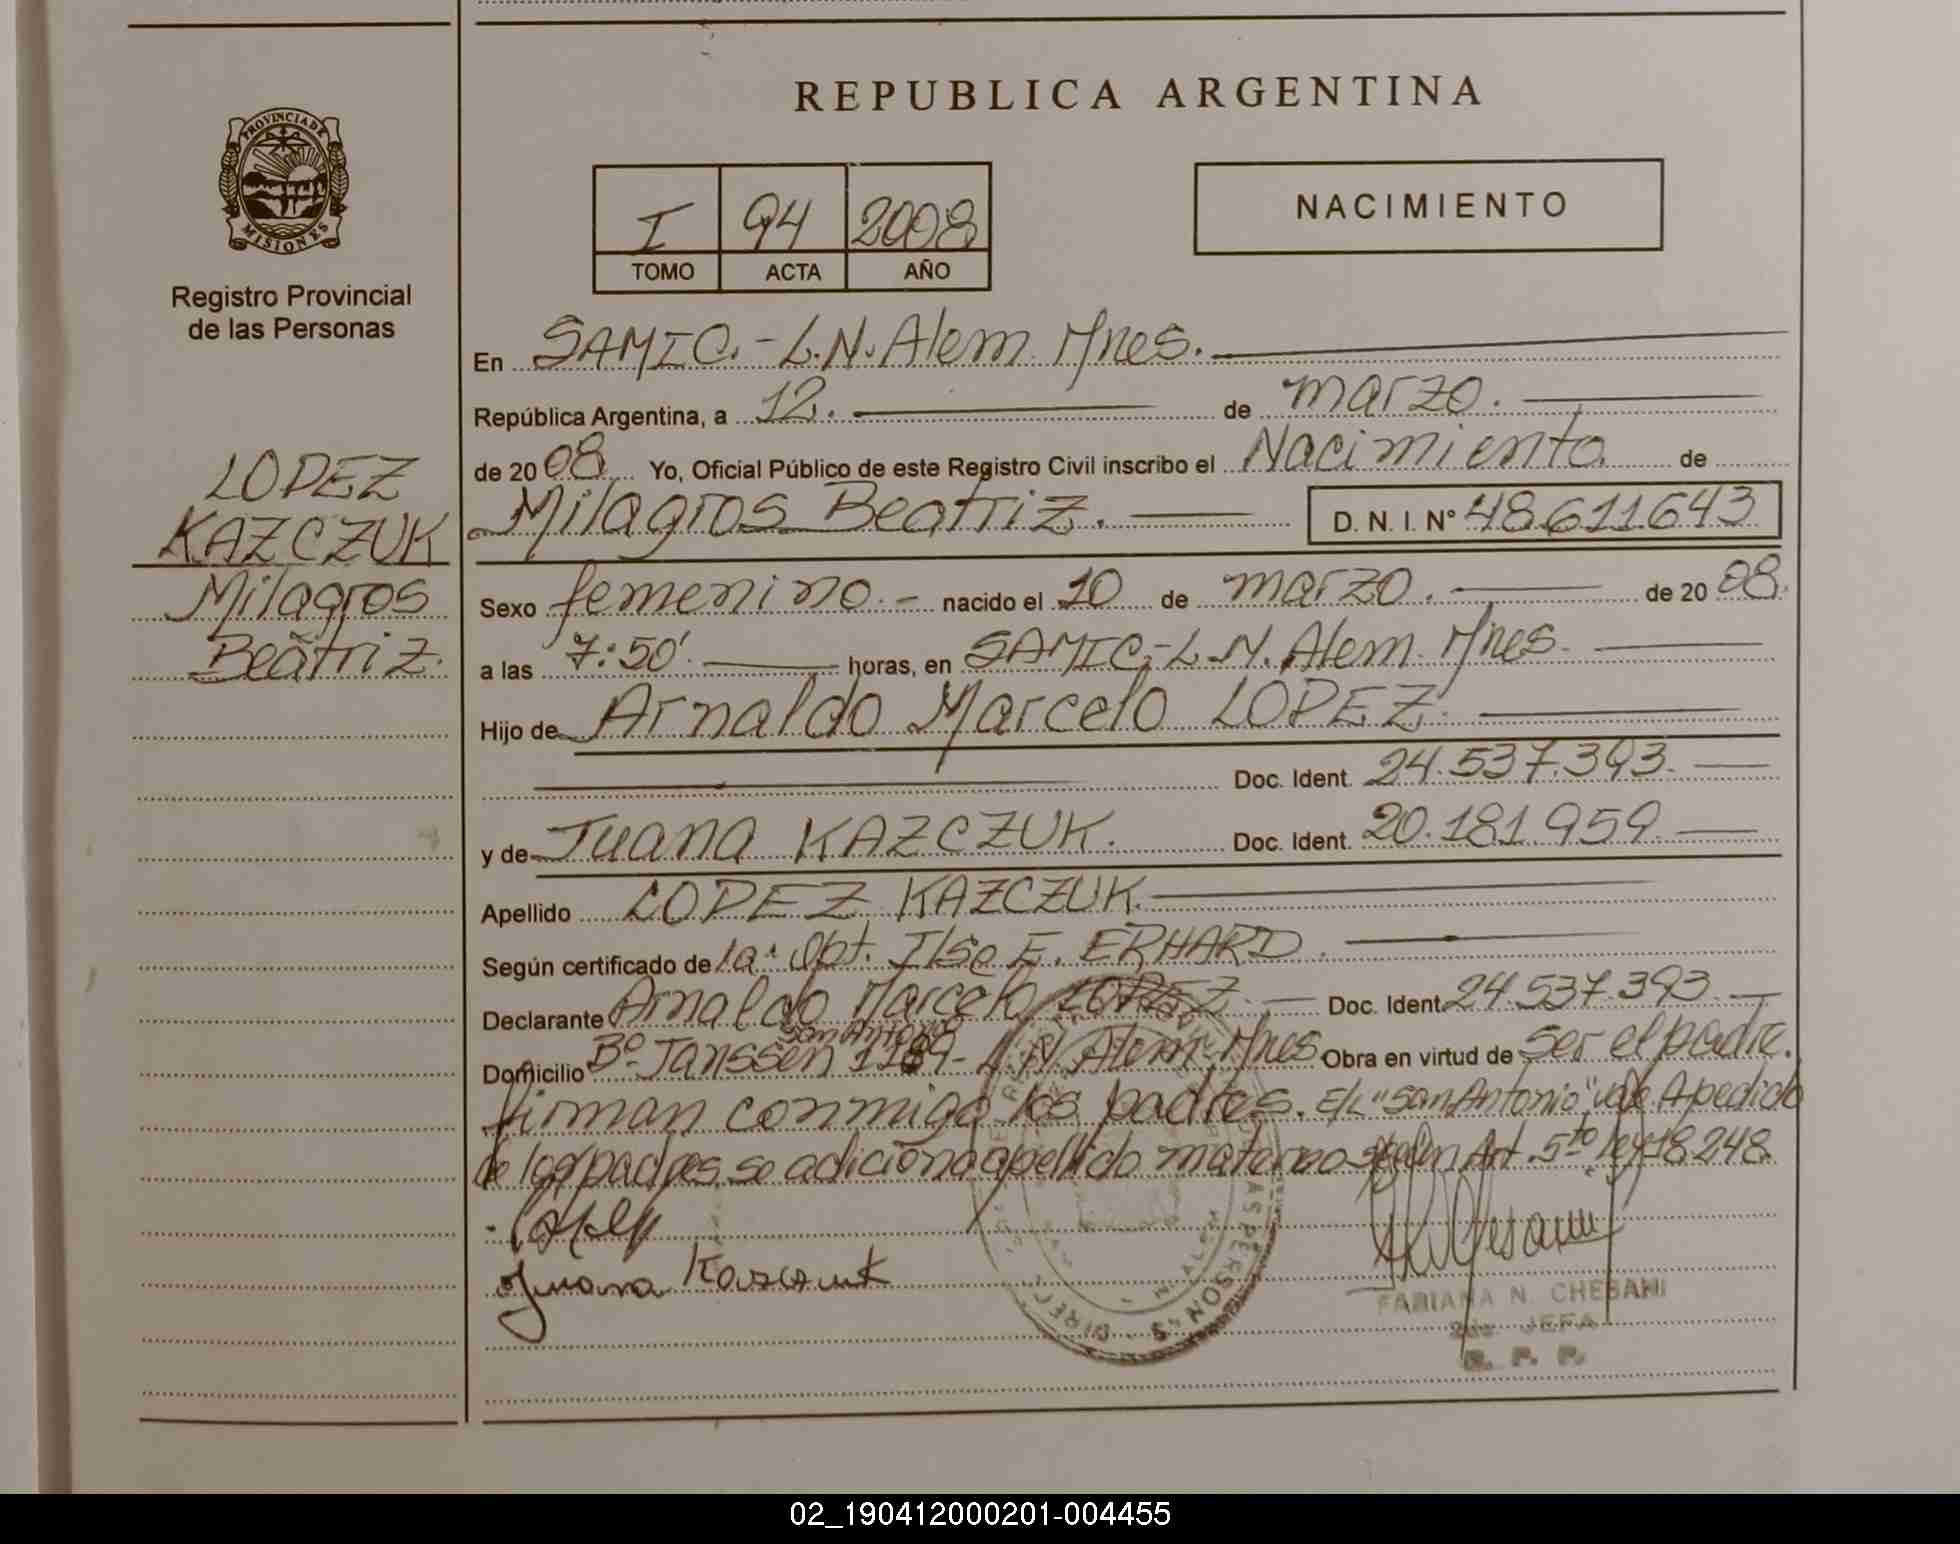 REPUBLICA ARGENTINA
PROVINCIA DE MISIONES
Registro Provincial
de las Personas
I 94 2008
TOMO ACTA AÑO
NACIMIENTO
LOPEZ
KAZCZUK
Milagros
Beatriz.
En SAMIC.-L.N.Alem Mnes.
República Argentina, a 12. de marzo.
de 2008. Yo, Oficial Público de este Registro Civil inscribo el Nacimiento de
Milagros Beatriz. D. N. I. Nº 48.611.643
Sexo femenino.- nacido el 10 de marzo. de 2008.
a las 7:50' horas, en SAMIC.-L.N. Alem. Mnes.
Hijo de Arnaldo Marcelo LOPEZ.
Doc. Ident. 24.537.393.
y de Juana KAZCZUK. Doc. Ident. 20.181.959.
Apellido LOPEZ KAZCZUK.
Según certificado de la Obt. Ilse E. ERHARD.
Declarante Arnaldo Marcelo LOPEZ. Doc. Ident. 24.537.393.
San Antonio
Domicilio Bº Janssen 1189- L.N. Alem Mnes. Obra en virtud de ser el padre.
firman conmigo los padres. E/L "San Antonio", vale. A pedido
de los padres se adiciona apellido materno según Art. 5to ley 18248.
Juana Kazczuk
FABIANA N. CHESANI
2da. JEFA
R. P. P.
02_190412000201-004455